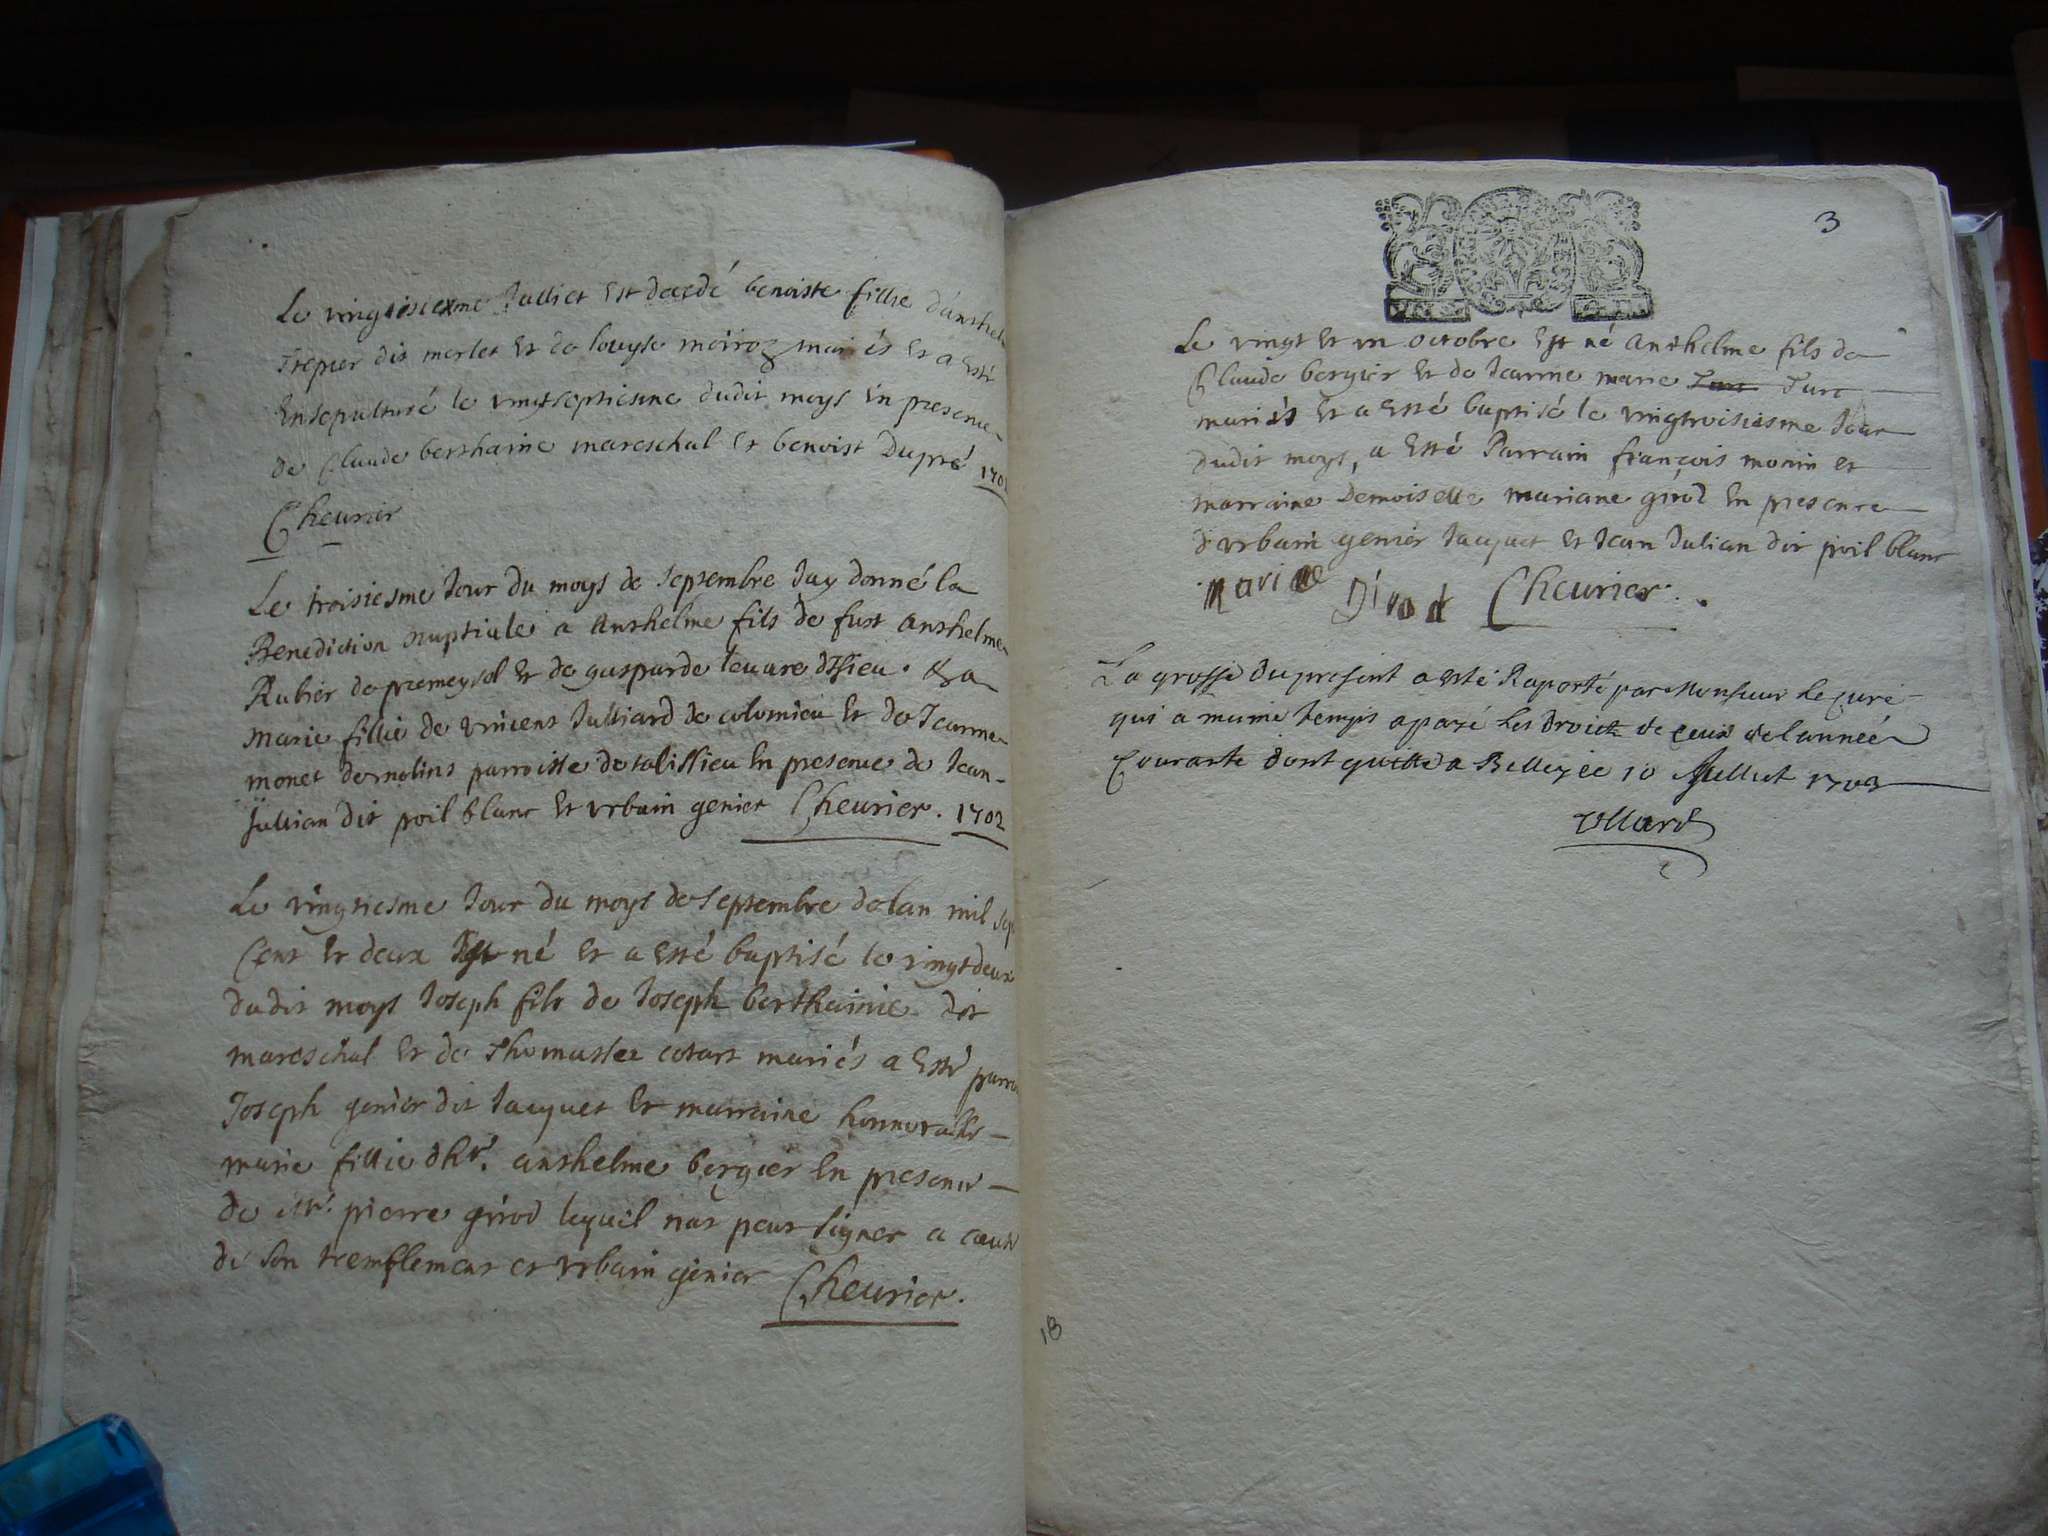 Le vingtiesiexme Julliet Est decedé benoiste fillie d'anthel
Trepier dit merlet Et de louyse moiroz mariés Et a Esté
Ensepulturé le vingtseptiesme dudit moys En presence
de Claude berthaine mareschal Et benoist Dupré 1702
Cheurier
Le troisiesme Jour du moys de septembre Jay donné la
Benediction nuptiale a Anthelme fils de fust anthelme
Rubier de premeysel Et de gusparde leuare dissieu. Et a
Marie fillie de vincent Julliard de colomieu Et de Jeanne
monet de molins parroisse de talissieu En presence de Jean
Jullian dit poil blanc Et vrbain genier Cheurier. 1702
Le vingtiesme Jour du moys de septembre de lan mil sep
Cent Et deux Est né Et a Esté baptisé le vingtdeux
dudit moys Joseph fils de Joseph berthainie dit
mareschal Et de Thomassez cotart mariés a Esté parra
Joseph genier dit Jacquet Et marraine honnorable
marie fillie dhr. anthelme bergier En presence
de Mr. pierre girod lequil nat peut signer a cause
de son tremblement et vrbain genier Cheurier.
3
Le vingt Et vn octobre Est né Anthelme fils de
Claude bergier Et de Jeanne marie Turc Turc
mariés Et a Esté baptisé le vingtroisiesme Jour
dudit moys, a Esté Parrain françois monin et
marraine Demoiselle mariane girod En presence
d'vrbain genier Jacquet Et Jean Julian dit poil blanc
Mariane Girod Cheurier.
La grosse du present a esté Raporté par Monsieur Le Curé
qui a mume temps a payé Les Droictz de ceux de lannéé
Courante dont quitté a Belley ce 10 Juilliet 1703
Ollard
18